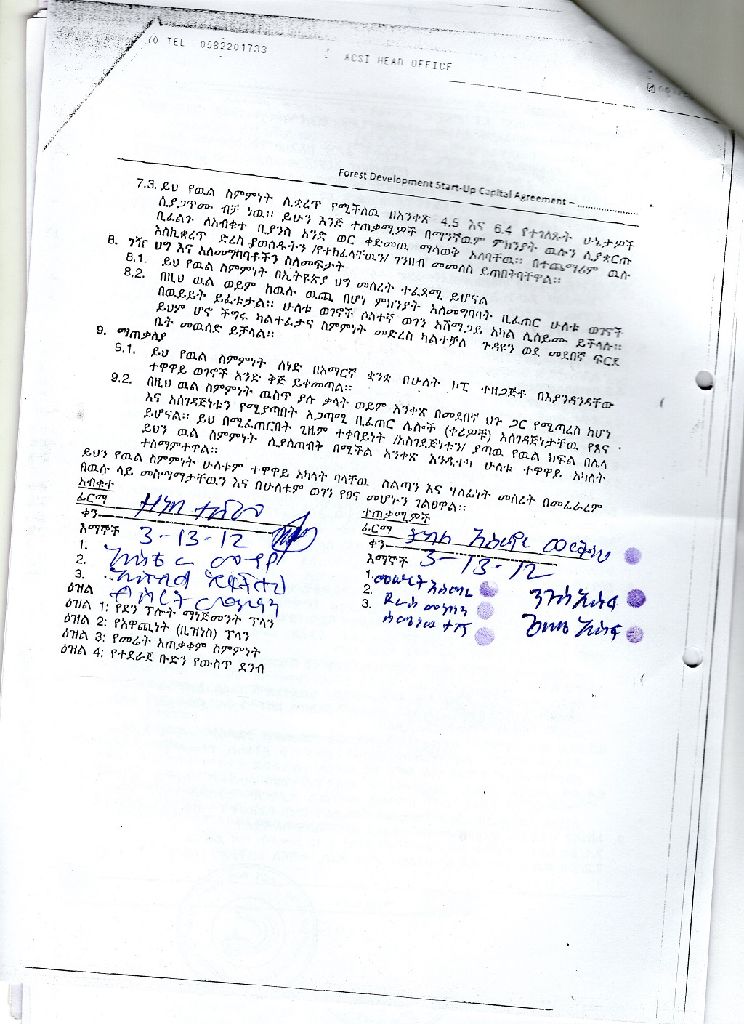 TEL 0582201733
ACSI HEAD OFFICE
Forest Development Start-Up Capital Agreement –
7.3. ይህ የዉል ስምምነት ሊቋረጥ የሚችለዉ በአንቀጽ 4.5 እና 6.4 የተገለጹት ሁኔታዎች
ሲያጋጥሙ ብቻ ነዉ፡፡ ይሁን እንጅ ተጠቃሚዎች በማንኛዉም ምክንያት ዉሉን ሲያቋርጡ
ቢፈልጉ ለአብቁተ ቢያንስ አንድ ወር ቀድመዉ ማሳወቅ አለባቸዉ፡፡ በተጨማሪም ዉሉ
እስኪቋረጥ ድረስ ያወሰዱትን /የተከፈላቸዉን/ ገንዘብ መመለስ ይጠበትባቸዋል፡፡
8. ገዥ ህግ እና አለመግባባቶችን ስለመፍታት
8.1. ይህ የዉል ስምምነት በኢትዩጵያ ህግ መሰረት ተፈጻሚ ይሆናል
8.2. በዚህ ዉል ወይም ከዉሉ ዉጪ በሆነ ምክንያት አለመግባባት ቢፈጠር ሁለቱ ወገኖች
በዉይይት ይፈቱታል፡፡ ሁለቱ ወገኖች ሶስተኛ ወገን አሸማጋይ አካል ሊሰይሙ ይችላሉ፡፡
ይህም ሆኖ ችግሩ ካልተፈታና ስምምነት መድረስ ካልተቻለ ጉዳዩን ወደ መደበኛ ፍርድ
ቤት መዉሰድ ይቻላል፡፡
9. ማጠቃለያ
9.1. ይህ የዉል ስምምነት ሰነድ በአማርኛ ቋንቋ በሁለት ኮፒ ተዘጋጅቶ በእያንዳንዳቸው
ተዋዋይ ወገኖች አንድ ቅጅ ይቀመጣል፡፡
9.2. በዚህ ዉል ስምምነት ዉስጥ ያሉ ቃላት ወይም አንቀጽ በመደበኛ ህጉ ጋር የሚጣረስ ከሆነ
እና አስገዳጅነቱን የሚያጣበት አጋጣሚ ቢፈጠር ሌሎች (ተራዎቹ) አስገዳጅነታቸዉ የጸና
ይሆናል፡፡ ይህ በሚፈጠርበት ጊዜም ተቀባይነት /አስገዳጅነቱን/ ያጣዉ የዉል ክፍል በሌላ
ይህን ዉል ስምምነት ሊያስጠብት በሚችል አንቀጽ እንዲተካ ሁለቱ ተዋዋይ አካላት
ተስማምተዋል፡፡
ይህን የዉል ስምምነት ሁለቱም ተዋዋይ አካላት ባላቸዉ ስልጣን እና ሃላፊነት መሰረት በመፈራረም
በዉሉ ላይ መስማማታቸዉን እና በሁለቱም ወገን የፀና መሆኑን ገልፀዋል፡፡
አብቁተ
ተጠቃሚዎች
ፊርማ
ፊርማ
ቀን 3-13-12
ቀን 3-13-12
እማኞች
እማኞች
1.
1.
2.
2.
3.
3.
ዕዝል
ዕዝል 1: የደን ፕሎት ማኔጅመንት ፕላን
ዕዝል 2: የአዋጪነት (ቢዝነስ) ፕላን
ዕዝል 3: የመሬት አጠቃቀም ስምምነት
ዕዝል 4: የተደራጀ ቡድን የውስጥ ደንብ